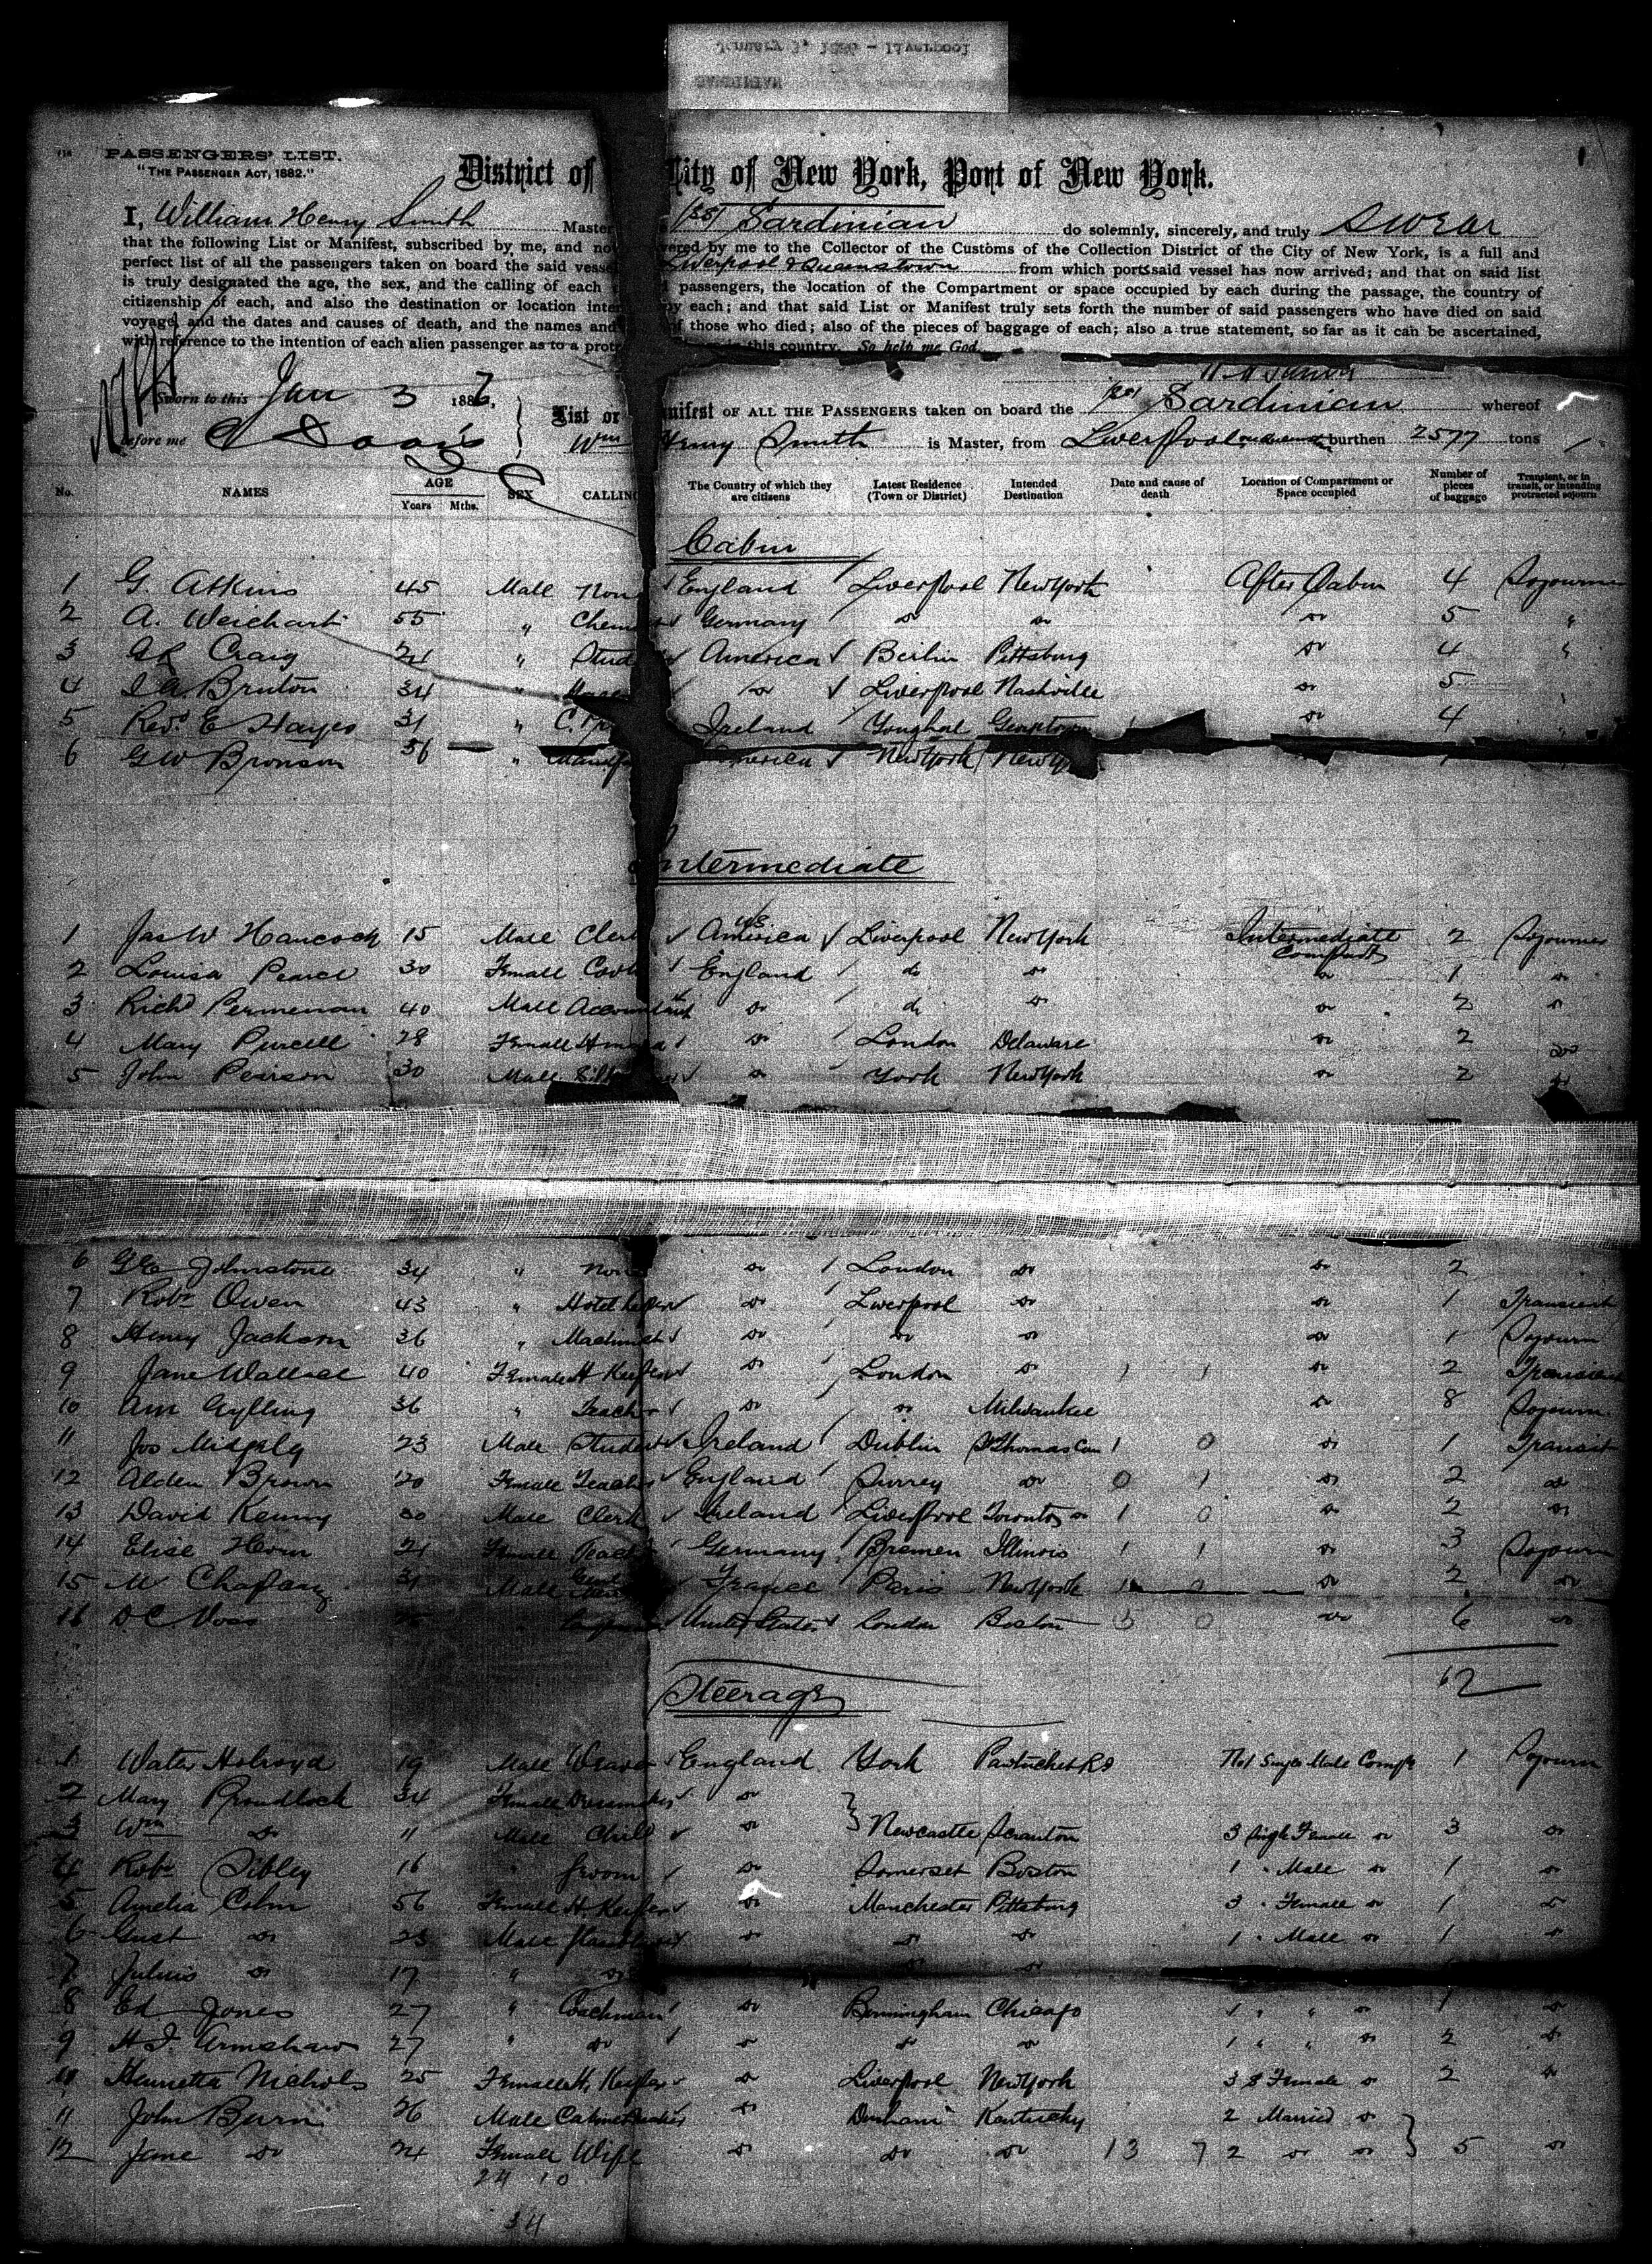 PASSENGERS' LIST.
"THE PASSENGER ACT, 1882."
District of City of New York, Port of New York.
I, William Henry Smith Master (SS) Sardinian do solemnly, sincerely, and truly Swear
that the following List or Manifest, subscribed by me, and now by me to the Collector of the Customs of the Collection District of the City of New York, is a full and
perfect list of all the passengers taken on board the said Liverpool & Queenstown from which ports said vessel has now arrived; and that on said list
is truly designated the age, the sex, and the calling of each passengers, the location of the Compartment or space occupied by each during the passage, the country of
citizenship of each, and also the destination or location by each; and that said List or Manifest truly sets forth the number of said passengers who have died on said
voyage, and the dates and causes of death, and the names and of those who died; also of the pieces of baggage of each; also a true statement, so far as it can be ascertained,
with reference to the intention of each alien passenger as to a in this country. So help me God.
Sworn to this Jan 3 188
before me
List or Manifest OF ALL THE PASSENGERS taken on board the (SS) Sardinian whereof
Wm Henry Smith is Master, from Liverpool burthen 2577 tons
No. NAMES AGE Years Mths. SEX CALLING The Country of which they are citizens Latest Residence (Town or District) Intended Destination Date and cause of death Location of Compartment or Space occupied Number of pieces of baggage Transient, or in transit, or intending protracted sojourn
Cabin
1 G. Atkins 45 Male England Liverpool New York After Cabin 4 Sojourn
2 A. Weichart 55 " Germany do do do 5 "
3 Craig 21 " America Berlin Pittsburg do 4 "
4 Bruton 34 " do Liverpool Nashville do 5
5 Revd E Hayes 31 " Ireland Youghal do 4
6 GW Bronson 56 " America New York New
Intermediate
1 Jas W Hancock 15 Male Clerk US America Liverpool New York Intermediate Compart 2 Sojourn
2 Louisa Pearce 30 Female Cook England do do do 1 do
3 Richd Permenan 40 Male Accountant do do do do 2 do
4 Mary Purcell 28 Female do London Delaware do 2 do
5 John Pearson 30 Male do York New York do 2 do
6 GE Johnstone 34 " do London do do 2
7 Robt Owen 43 " Hotel Keeper do Liverpool do do 1 Transient
8 Henry Jackson 36 " Machinist do do do do 1 Sojourn
9 Jane Wallace 40 Female H Keeper do London do 1 1 do 2 Transient
10 Ann Gylling 36 " Teacher do do Milwaukee do 8 Sojourn
11 Jos Midgely 23 Male Student Ireland Dublin St Thomas Can 1 0 do 1 Transit
12 Alden Brown 20 Female Teacher England Surrey do 0 1 do 2 do
13 David Kenny 30 Male Clerk Ireland Liverpool Toronto do 1 0 do 2 do
14 Elise Horn 21 Female Teacher Germany Bremen Illinois 1 1 do 3 Sojourn
15 M 31 Male France Paris New York do 2 do
16 D.C. Voss " United States London Boston 3 0 do 6 do
62
Steerage
1 Walter Holroyd 19 Male Weaver England York Pawtucket RI No1 Single Male Comp 1 Sojourn
2 Mary Proudlock 34 Female Dressmaker do
3 Wm do 11 Male Child do Newcastle Scranton 3 Single Female do 3 do
4 Robt Sibley 16 " Groom do Somerset Boston 1 " Male do 1 do
5 Amelia Cohn 56 Female H. Keeper do Manchester Pittsburg 3 " Female do 1 do
6 Gust do 23 Male do do do 1 " Male do 1 do
7 Julius do 17 " do do do
8 Ed Jones 27 " Coachman do Birmingham Chicago 1 " " do 1 do
9 H.J. Armshaw 27 " do do do do 1 " " do 2 do
10 Henrietta Nichols 25 Female H. Keeper do Liverpool New York 3 S Female do 2 do
11 John Burn 26 Male Cabinet Maker do Durham Kentucky 2 Married do
12 Jane do 24 Female Wife do do do 13 7 2 do do 5 do
24 10
34